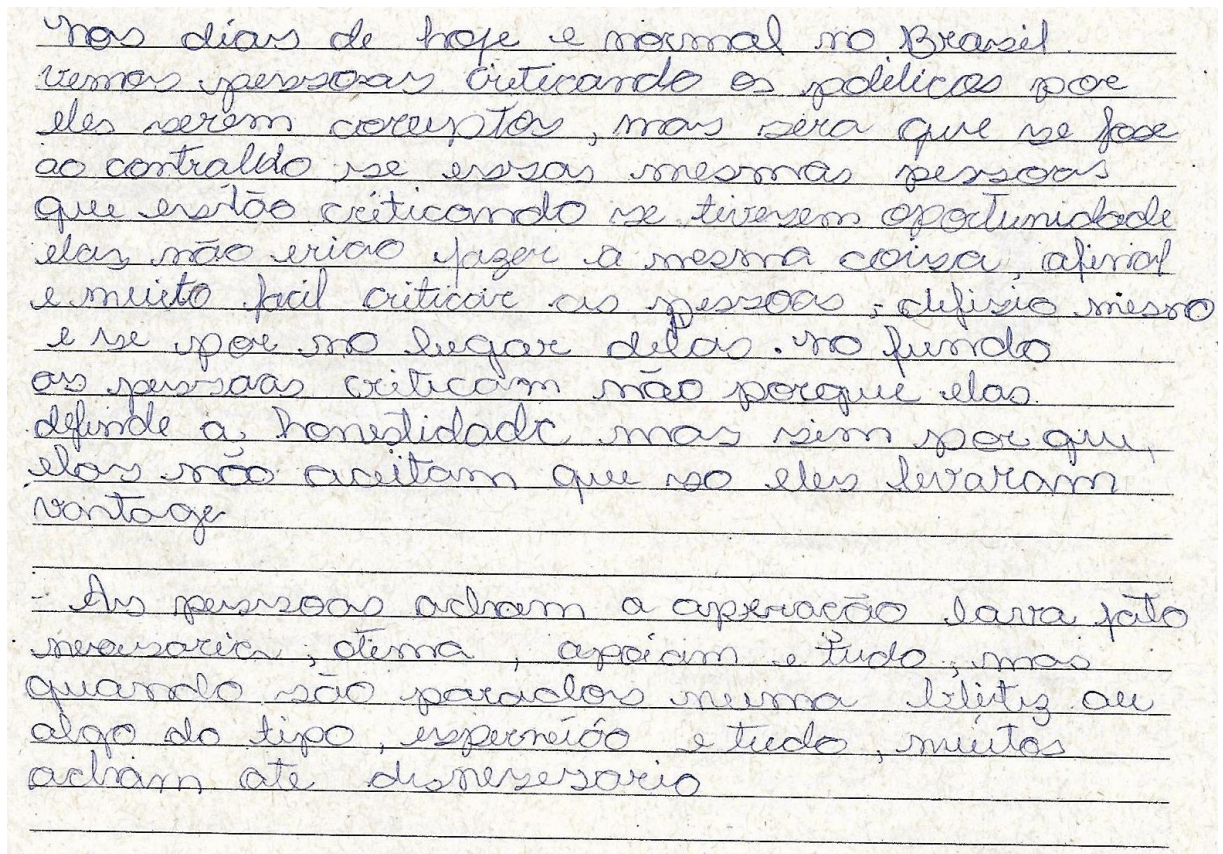 Nos dias de hoje e normal no Brasil
vemos pessoas criticando os politicos por
eles serem coruptos, mas sera que se fose
ao contraldo se essas mesmas pessoas
que estão criticando se tivesem oportunidade
elas não eriao fazer a mesma coisa, afinal
e muito facil criticar as pessoas, defisio mesno
e se por no lugar delas. no fundo
as pessoas criticam não porque elas
definde a honestidade mas sim por que
elas não aceitam que so eles levaram
vantage
- As pessoas acham a operacão lava jato
nesesaria, otema, apoiam e tudo, mas
quando são parados numa blitiz ou
algo do tipo, esperneião e tudo, muitos
acham ate disnesesario